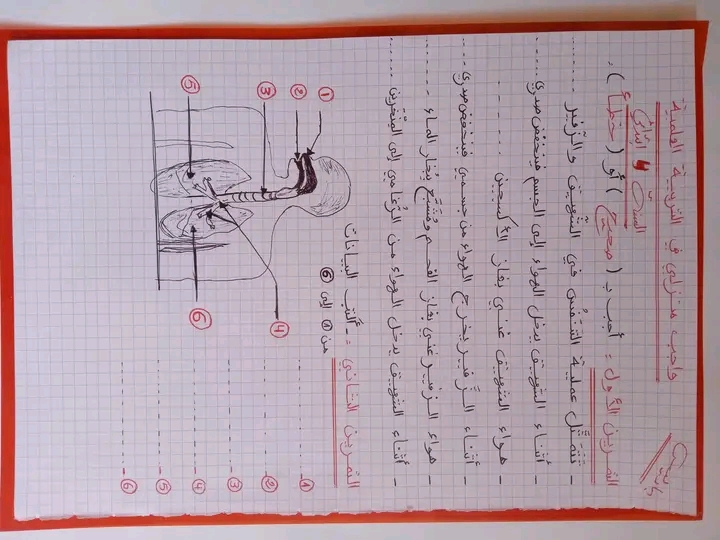 واجب منزلي في التربية العلمية
السنة 4 ابتدائي
التمرين الأول : أجب بـ ( صحيح ) أو ( خطأ ) .
- تتمثل عملية التنفس في الشهيق والزفير ......
- أثناء الشهيق يدخل الهواء إلى الجسم فينخفض صدري ......
- هواء الشهيق غني بغاز الأكسجين ......
- أثناء الزفير يخرج الهواء من جسمي فينخفض صدري ......
- هواء الزفير غني بغاز الفحم ومُشبّع ببخار الماء ......
- أثناء الشهيق يدخل الهواء من الرغامي إلى المنخرين ......
التمرين الثاني :- أكتب البيانات
من ① إلى ⑥
①
②
③
④
⑤
⑥
① ------
② ------
③ ------
④ ------
⑤ ------
⑥ ------